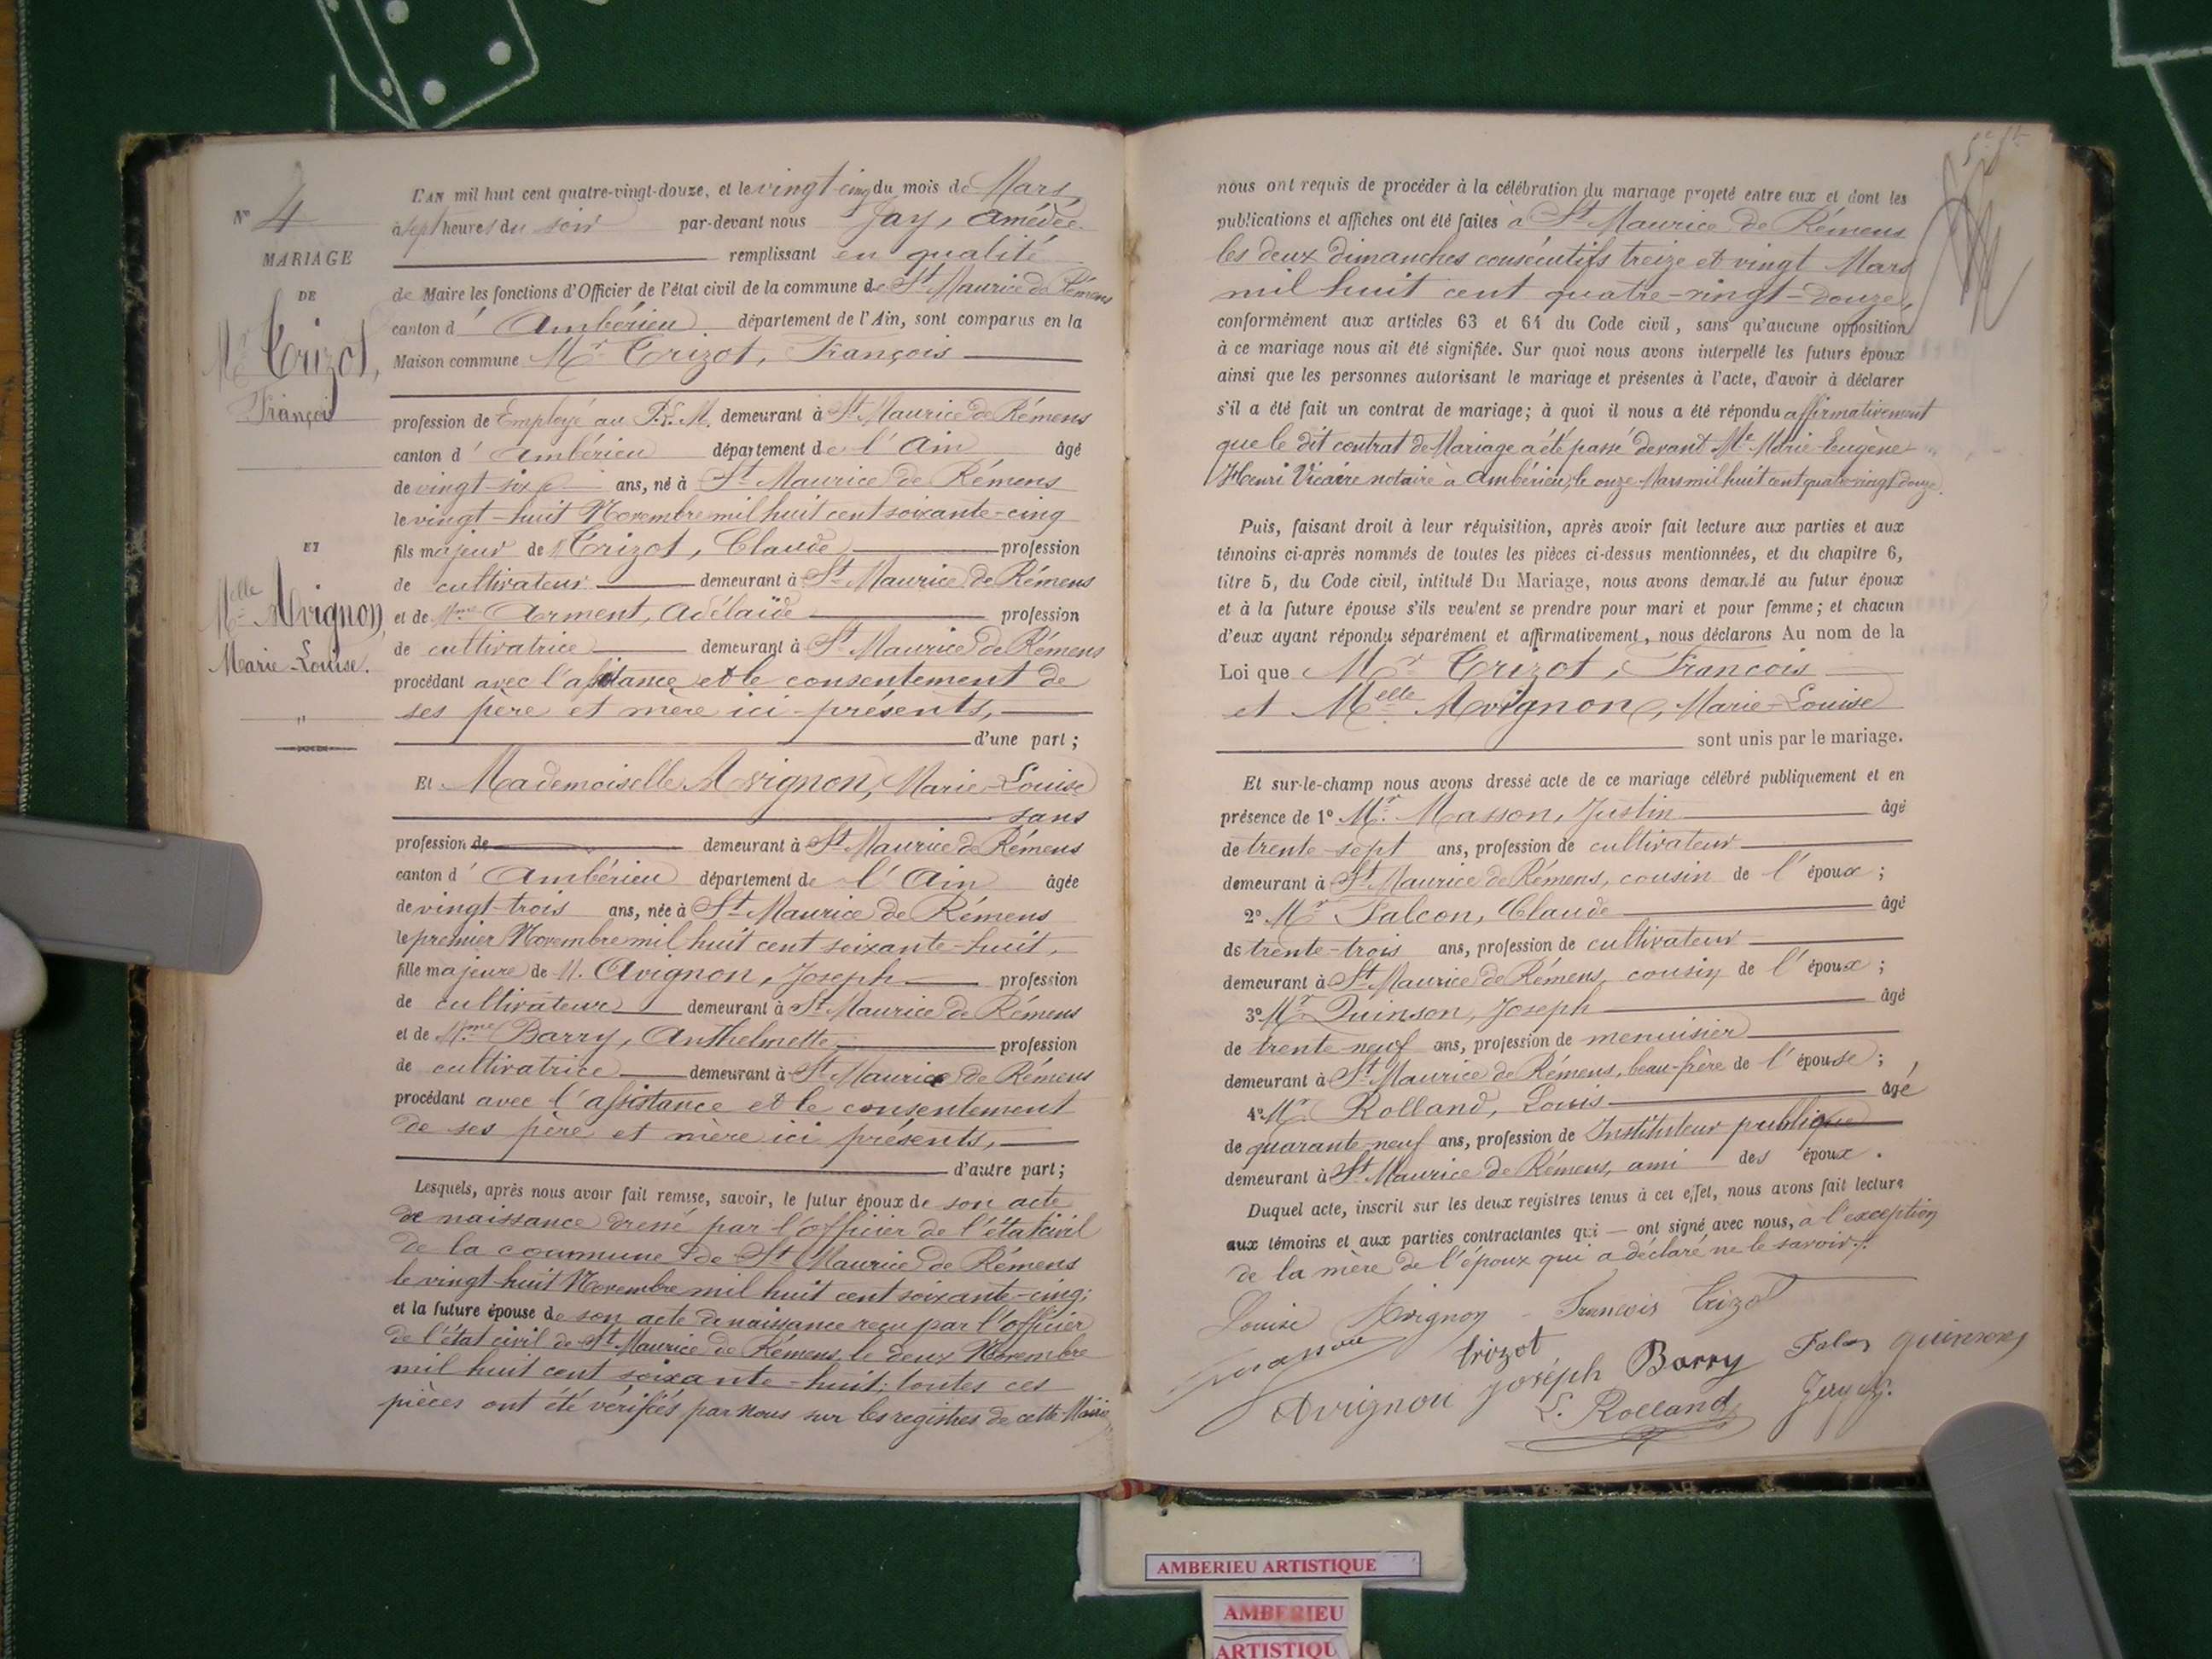 N° 4
MARIAGE
DE
Mr Trizot,
François
ET
Melle Avignon,
Marie-Louise.
L'AN mil huit cent quatre-vingt-douze, et le vingt-cinq du mois de Mars
à sept heures du soir par-devant nous Jay, Amédée
remplissant en qualité
de Maire les fonctions d'Officier de l'état civil de la commune de St Maurice de Rémens
canton d'Ambérieu département de l'Ain, sont comparus en la
Maison commune Mr Trizot, François
profession de Employé au P.L.M. demeurant à St Maurice de Rémens
canton d'Ambérieu département de l'Ain âgé
de vingt-six ans, né à St Maurice de Rémens
le vingt-huit Novembre mil huit cent soixante-cinq
fils majeur de M. Trizot, Claude profession
de cultivateur demeurant à St Maurice de Rémens
et de Mme Arment, Adélaïde profession
de cultivatrice demeurant à St Maurice de Rémens
procédant avec l'assistance et le consentement de
ses père et mère ici présents,
d'une part ;
Et Mademoiselle Avignon, Marie-Louise
sans
profession de demeurant à St Maurice de Rémens
canton d'Ambérieu département de l'Ain âgée
de vingt-trois ans, née à St Maurice de Rémens
le premier Novembre mil huit cent soixante-huit,
fille majeure de M. Avignon, Joseph profession
de cultivateur demeurant à St Maurice de Rémens
et de Mme Barry, Anthelmette profession
de cultivatrice demeurant à St Maurice de Rémens
procédant avec l'assistance et le consentement
de ses père et mère ici présents,
d'autre part ;
Lesquels, après nous avoir fait remise, savoir, le futur époux de son acte
de naissance dressé par l'officier de l'état civil
de la commune de St Maurice de Rémens
le vingt-huit Novembre mil huit cent soixante-cinq;
et la future épouse de son acte de naissance reçu par l'officier
de l'état civil de St Maurice de Rémens le deux Novembre
mil huit cent soixante-huit; toutes ces
pièces ont été vérifiées par nous sur les registres de cette Mairie
nous ont requis de procéder à la célébration du mariage projeté entre eux et dont les
publications et affiches ont été faites à St Maurice de Rémens
les deux dimanches consécutifs treize et vingt Mars
mil huit cent quatre-vingt-douze,
conformément aux articles 63 et 64 du Code civil, sans qu'aucune opposition
à ce mariage nous ait été signifiée. Sur quoi nous avons interpellé les futurs époux
ainsi que les personnes autorisant le mariage et présentes à l'acte, d'avoir à déclarer
s'il a été fait un contrat de mariage; à quoi il nous a été répondu affirmativement
que le dit contrat de Mariage a été passé devant Me Marie-Eugène
Henri Vicaire notaire à Ambérieu, le onze Mars mil huit cent quatre-vingt douze.
Puis, faisant droit à leur réquisition, après avoir fait lecture aux parties et aux
témoins ci-après nommés de toutes les pièces ci-dessus mentionnées, et du chapitre 6,
titre 5, du Code civil, intitulé Du Mariage, nous avons demandé au futur époux
et à la future épouse s'ils veulent se prendre pour mari et pour femme; et chacun
d'eux ayant répondu séparément et affirmativement, nous déclarons Au nom de la
Loi que Mr Trizot, François
et Melle Avignon, Marie-Louise
sont unis par le mariage.
Et sur-le-champ nous avons dressé acte de ce mariage célébré publiquement et en
présence de 1° Mr. Masson, Justin âgé
de trente-sept ans, profession de cultivateur
demeurant à St Maurice de Rémens, cousin de l'époux ;
2° Mr Falcon, Claude âgé
de trente-trois ans, profession de cultivateur
demeurant à St Maurice de Rémens, cousin de l'époux ;
3° Mr Quinson, Joseph âgé
de trente-neuf ans, profession de menuisier
demeurant à St Maurice de Rémens, beau-frère de l'épouse ;
4° Mr. Rolland, Louis âgé
de quarante-neuf ans, profession de Instituteur publique
demeurant à St Maurice de Rémens, ami des époux.
Duquel acte, inscrit sur les deux registres tenus à cet effet, nous avons fait lecture
aux témoins et aux parties contractantes qui — ont signé avec nous, à l'exception
de la mère de l'époux qui a déclaré ne le savoir.
Louise Avignon François Trizot
Masson Trizot Joséph Barry Falcon quinson
Avignon L. Rolland Jay A.
AMBERIEU ARTISTIQUE
AMBERIEU
ARTISTIQU